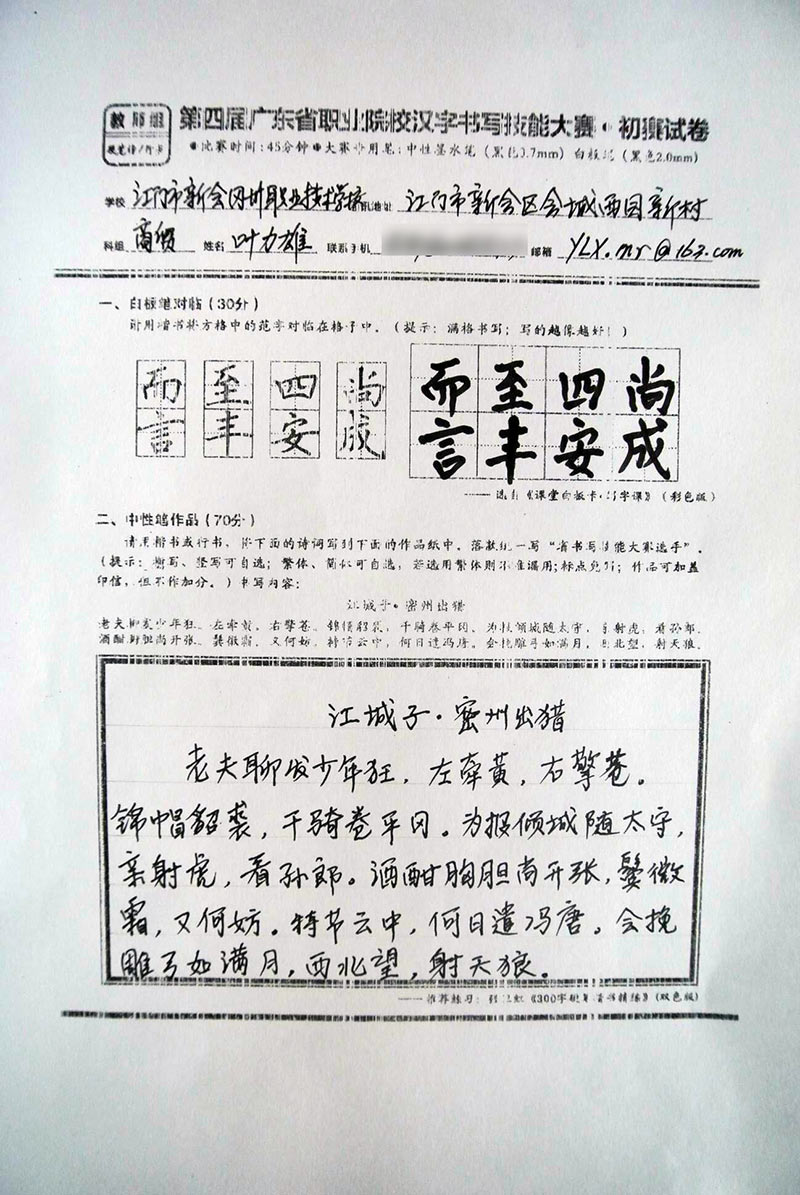 教师组
第四届广东省职业院校汉字书写技能大赛·初赛试卷
●比赛时间:45分钟●大赛专用笔:中性墨水笔(黑色0.7mm)白板笔(黑色2.0mm)
学校 江门市新会冈州职业技术学校 通讯地址 江门市新会区会城西园新村
科组 商贸 姓名 叶力雄 联系手机 邮箱 YLX.mr@163.com
一、白板笔对临(30分)
请用楷书将方格中的范字对临在格子中。(提示:满格书写;写的越像越好!)
而 至 四 尚 而 至 四 尚
言 丰 安 成 言 丰 安 成
《课堂白板卡·写字课》(彩色版)
二、中性笔作品(70分)
请用楷书或行书,将下面的诗词写到下面的作品纸中。落款统一写“省书写技能大赛选手”。
(提示:横写、竖写可自选;繁体、简体可自选,若选用繁体则不准漏用;标点免写;作品可加盖
印信,但不作加分。)书写内容:
江城子·密州出猎
老夫聊发少年狂,左牵黄,右擎苍。锦帽貂裘,千骑卷平冈。为报倾城随太守,亲射虎,看孙郎。
酒酣胸胆尚开张,鬓微霜,又何妨。持节云中,何日遣冯唐。会挽雕弓如满月,西北望,射天狼。
江城子·密州出猎
老夫聊发少年狂,左牵黄,右擎苍。
锦帽貂裘,千骑卷平冈。为报倾城随太守,
亲射虎,看孙郎。酒酣胸胆尚开张,鬓微
霜,又何妨。持节云中,何日遣冯唐。会挽
雕弓如满月,西北望,射天狼。
——推荐练习:《300字 楷书精练》(双色版)